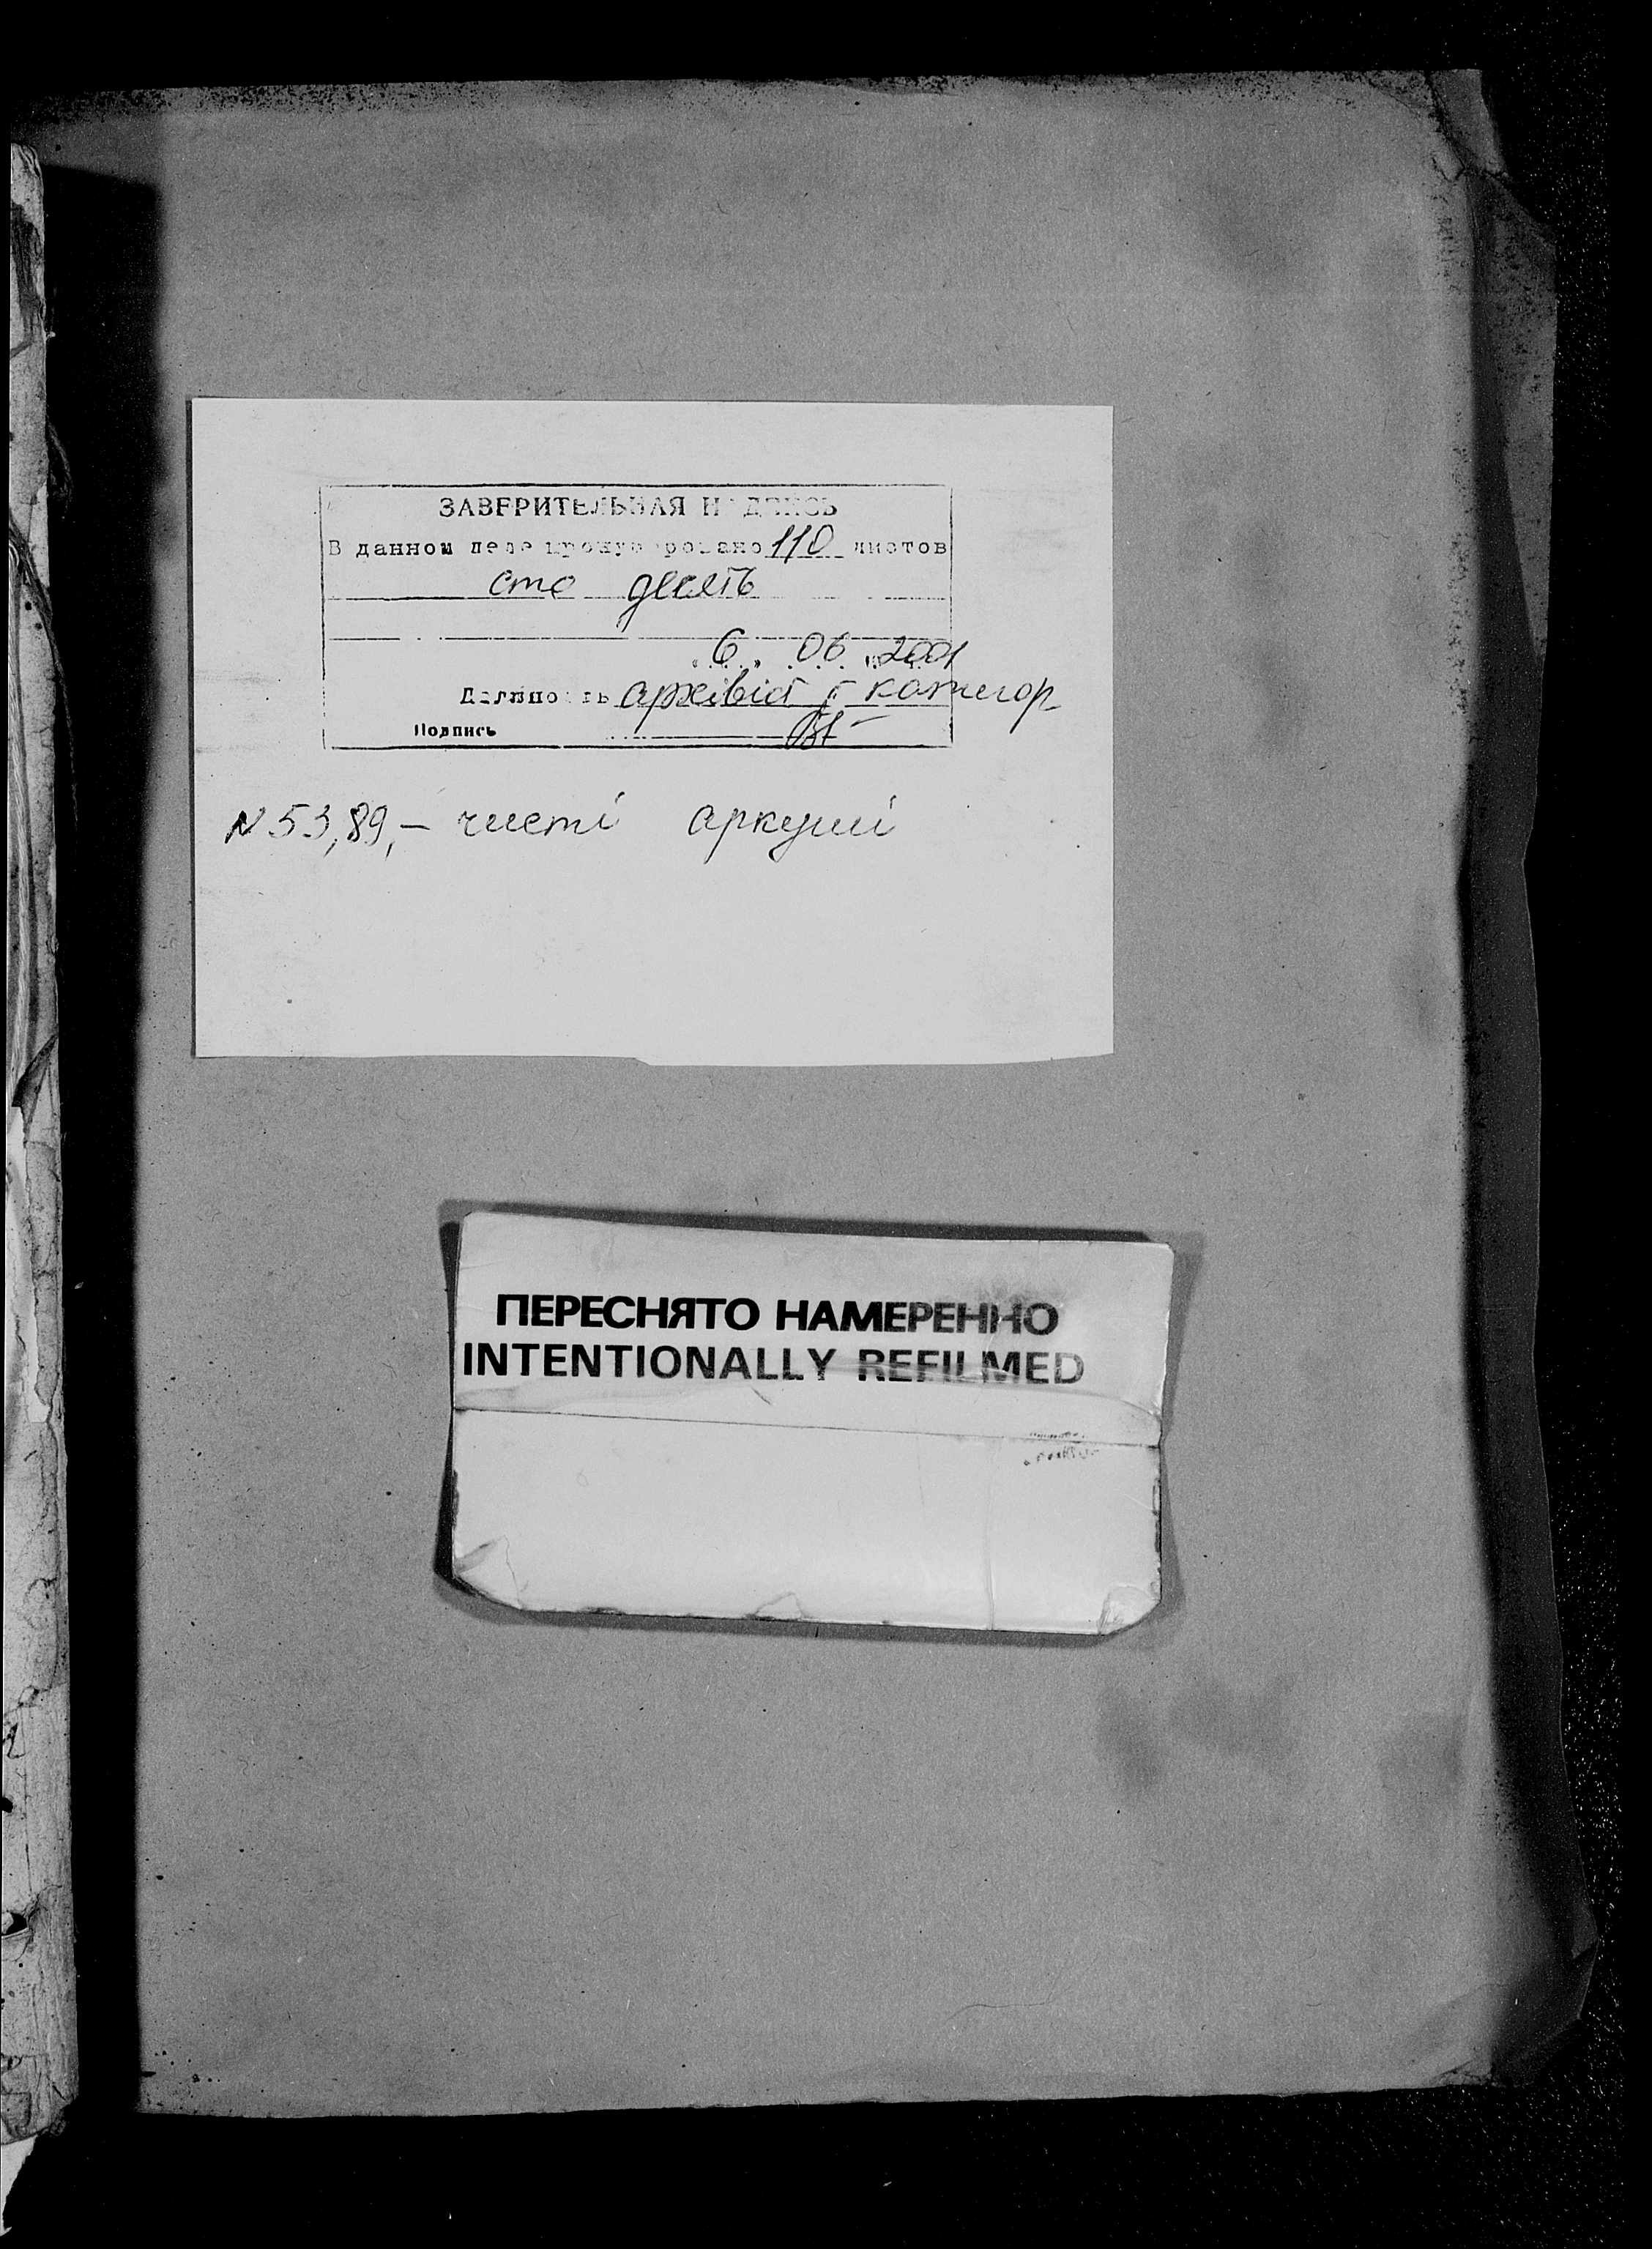 ЗАВЕРИТЕЛЬНАЯ НАДПИСЬ
В данном деле пронумеровано 110 листов
сто десять
« 6 » 06 2001
Должность архівіст І категор
Подпись
N 53, 89, – чисті аркуші
ПЕРЕСНЯТО НАМЕРЕННО
INTENTIONALLY REFILMED